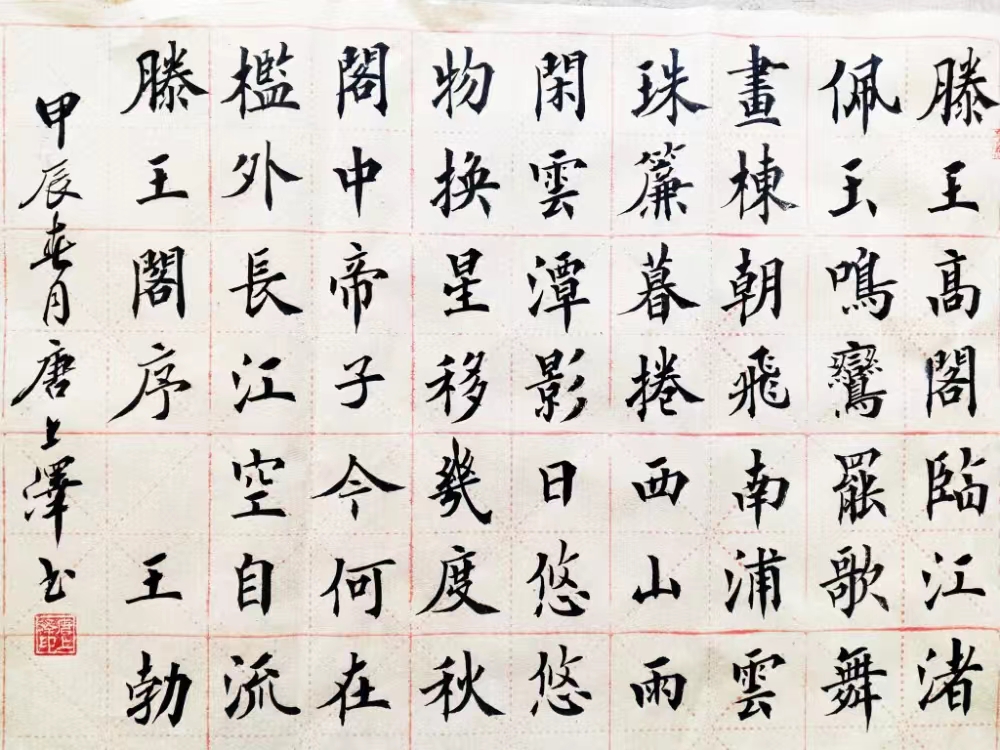 滕王高閣臨江渚
佩玉鳴鸞罷歌舞
畫棟朝飛南浦雲
珠簾暮捲西山雨
閑雲潭影日悠悠
物換星移幾度秋
閣中帝子今何在
檻外長江空自流
滕王閣序 王勃
甲辰春月唐上澤书